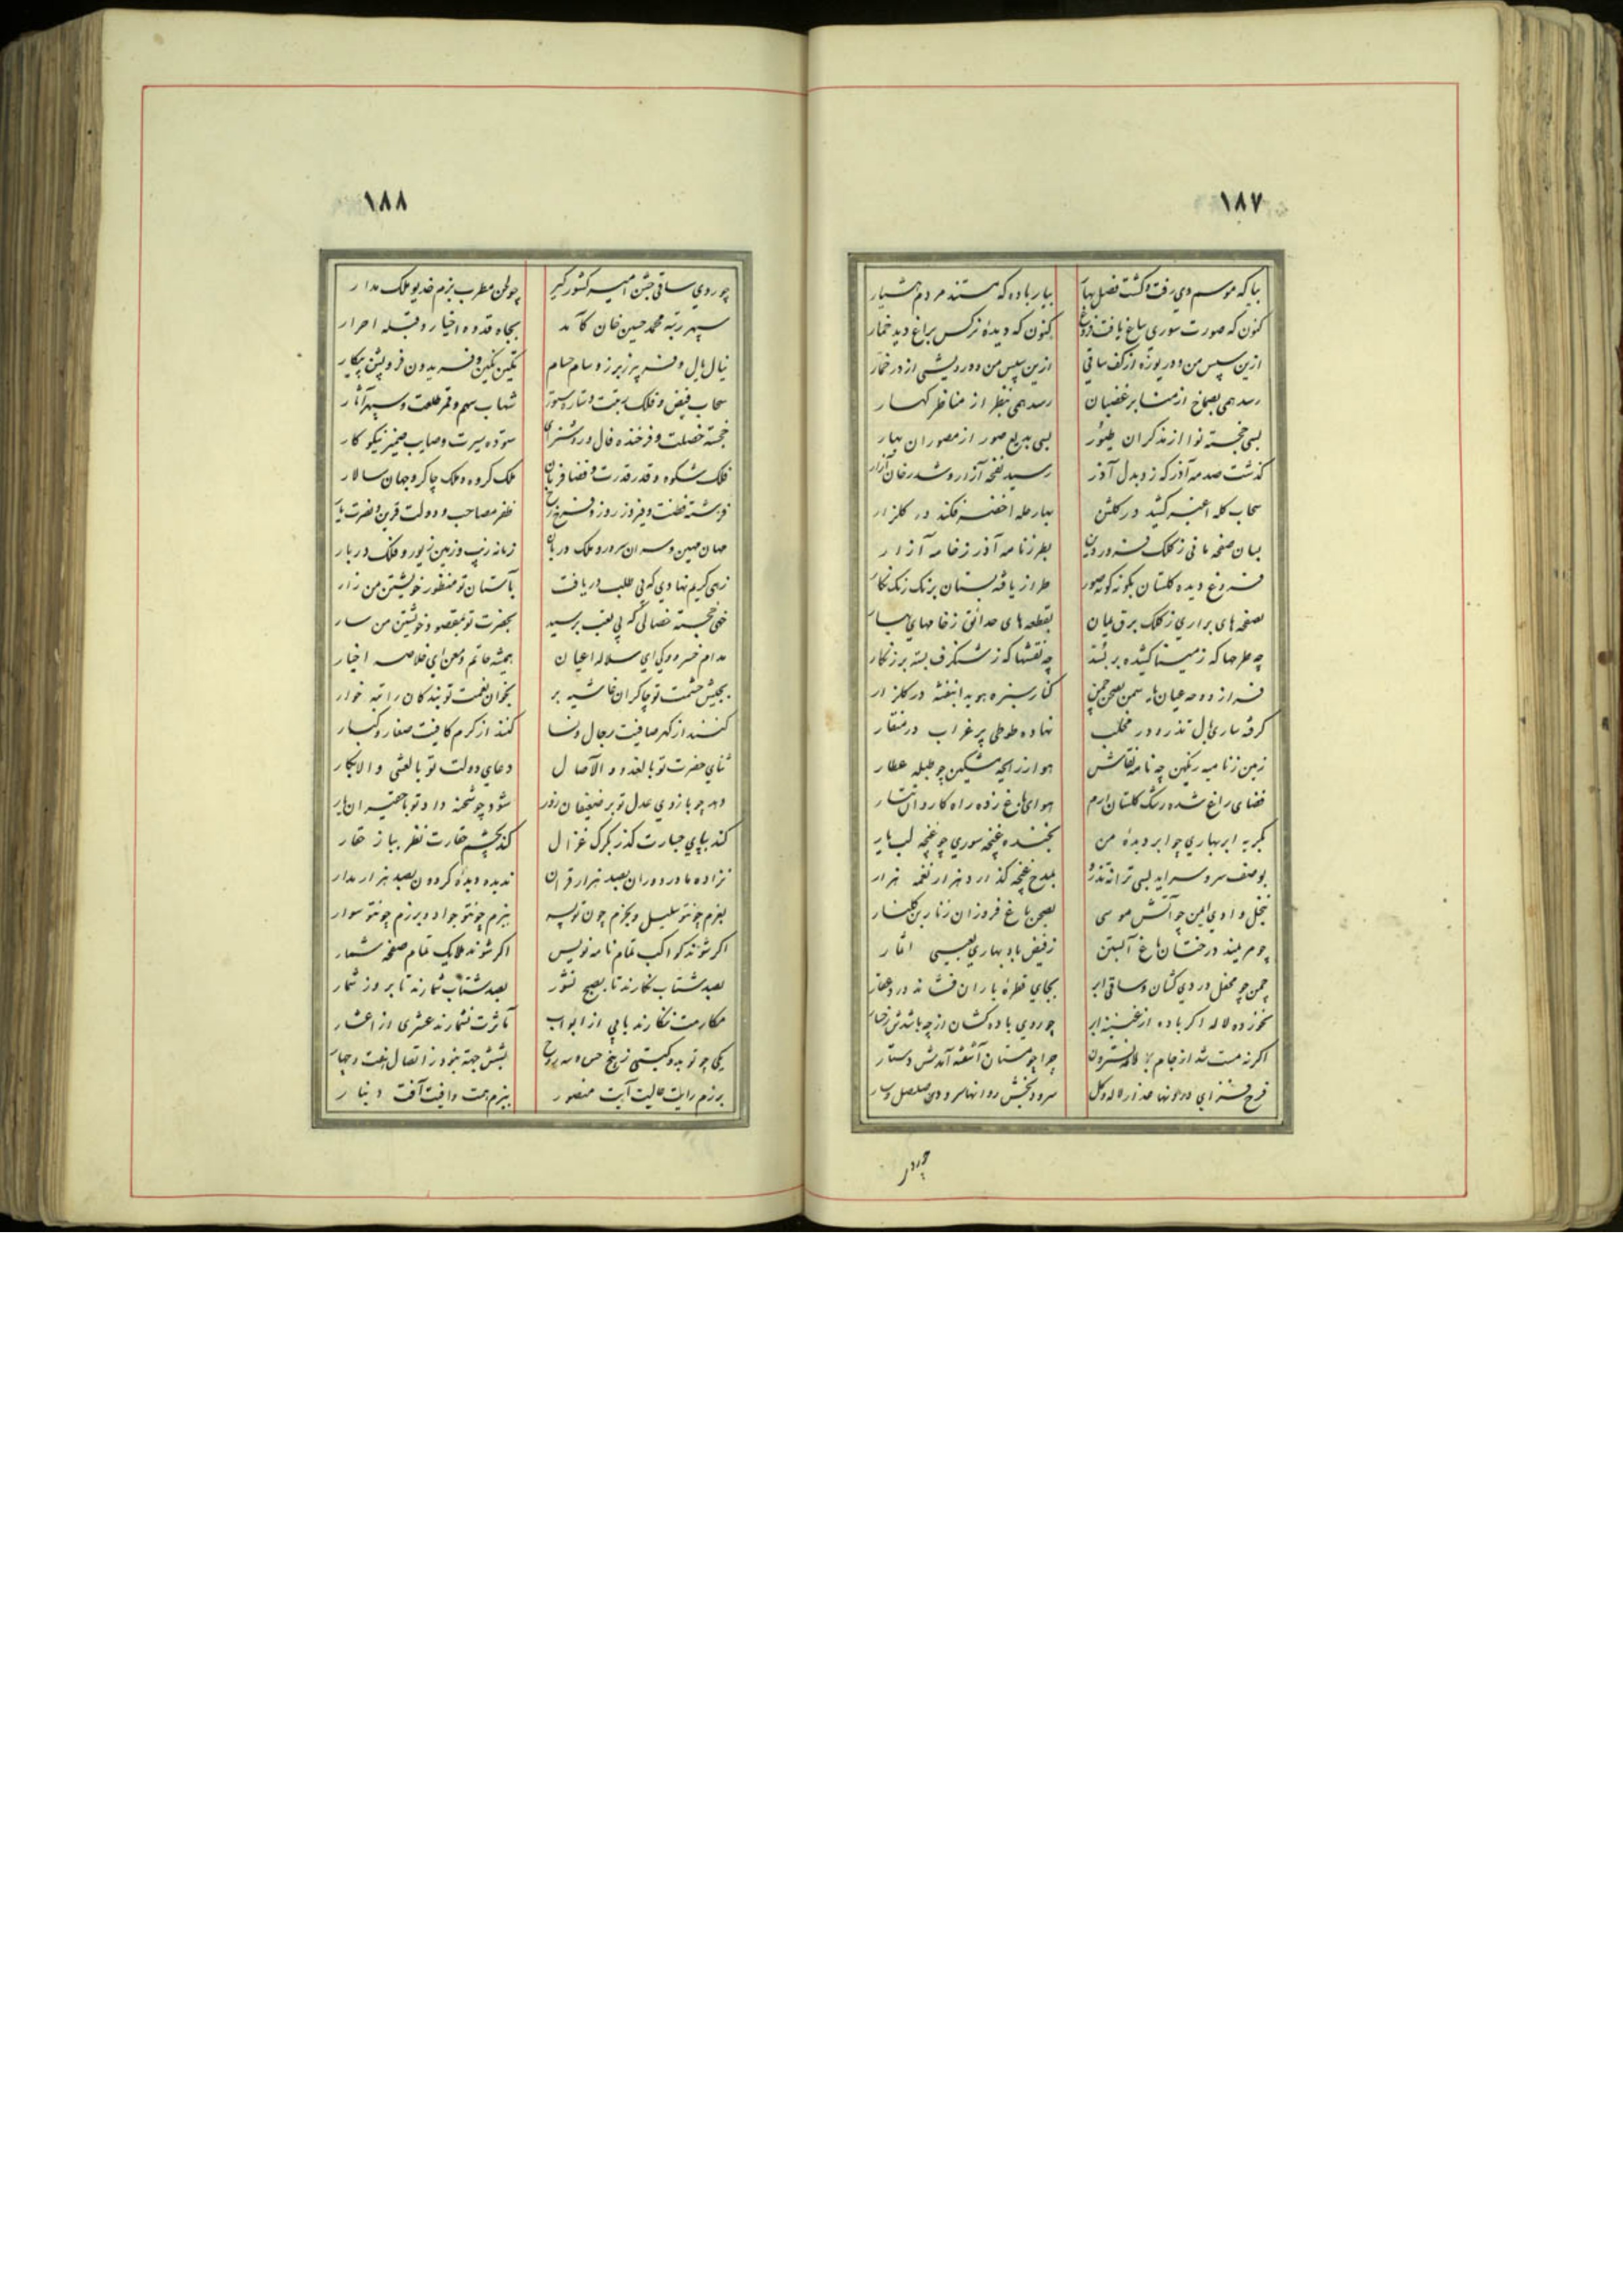 ١٨٧
بیا که موسم دی رفت و گشت فصل بهار بیار باده که هستند مردم هشیار
کنون که صورت سوری بباغ یافت فروغ کنون که دیدهٔ نرکس براغ دید خمار
ازین سپس من و دریوزه از کف ساقی ازین سپس من و درویشی از در خمار
رسد همی بصماخ از منابر غضبان رسد همی بنظر از مناظر کهسار
بسی خجسته نوا از مذکران طیور بسی بدیع صور از مصوران بهار
گذشت صدمه آذر که زد بدل آذر رسید نفخه آزار و شد رخان آزار
سحاب کله اغبر کشید در کلشن بهار حله اخضر فکند در کلزار
بسان صفحه مانی ز کلک فروردین بطرز نامه آذر ز خامه آزار
فروغ دیده کلستان بگونه گونه صور طراز یافه بستان برنک رنک نکار
بصفحه های براری ز کلک برق میان بقطعه های حدائق ز خامهای بهار
چه طرحها که ز مینا کشیده بر چه نقشها که ز شنکرف بسته بر زنکار
فراز دوحه عیان سمن بصحن چمن کنار سبزه هویدا بنفشه در کلزار
گرفته ساری بال تذرو در مخلب نهاده طوطی پر غراب در منقار
زمین ز نامیه رنکین چو نامه نقاش هوا ز رایحه مشکین چو طبله عطار
فضای راغ شده رشک کلستان ارم هوای باغ زده راه کاروان تتار
بگریه ابر بهاری چو ابر دیدهٔ من بخنده غنچه سوری چو غنچه لب یار
بوصف سرو سراید بسی ترانه تذرو بمدح غنچه گذارد هزار نغمه هزار
بنخل وادی ایمن چو آتش موسی بصحن باغ فروزان ز نار بن کلنار
چو مریمند درختان باغ آبستن ز فیض باد بهاری بعیسی اثمار
چمن چو محفل دردی کشان و ساقی ابر بجای قطره باران فشانده درد عقار
نخورده لاله اکر باده از ابر چو روی باده کشان از چه باشدش رخسار
اکر نه مست شد از جام لاله نسترون چرا چو مستان آشفته آمدش دستار
فرح فزای درونها عذار لاله و کل سرود بخش روانها سرود صلصل و سار
١٨٨
چو روی ساقی جشن امیر کشور گیر چو لحن مطرب بزم خدیو ملک مدار
سپهر رتبه محمد حسین خان کآمد بجاه قدوه اخیار و قبله احرار
نیال بال و فریبرز برز و سام حسام تکین نکین و فریدون فر و پشن پیکار
سحاب فیض و فلک رجعت و ستاره سور شهاب سهم و قمر طلعت و سپهر آثار
خجسته خصلت و فرخنده فال و روشن رای ستوده سیرت و صایب ضمیر نیکو کار
فلک شکوه و قدر قدرت و قضا فرمان ملک کروه و ملک چاکر و جهان سالار
فرشته فطنت و فیروز روز و فرخ رخ ظفر مصاحب و دولت قرین و نصرت یار
مهان مهین و سران سرور و ملک دربان زمانه زیب و زمین زیور و فلک دربار
زهی کریم نهادی که بی طلب دریافت بآستان تو منظور خویشتن من زار
خهی خجسته خصالی که بی تعب برسید بحضرت تو بمقصود خویشتن من سار
مدام خسرو و کی ای سلاله اعیان همیشه حاتم و معن ای خلاصه اخیار
بجیش حشمت تو چاکران غاشیه بر بخوان نعمت تو بندکان راتبه خوار
کنند از کهر صافیت رجال و نسا کنند از کرم کافیت صغار و کبار
ثنای حضرت تو بالغدو و الآصال دعای دولت تو بالعشی و الابکار
دهد چو بازوی عدل تو بر ضعیفان زور شود چو شحنه داد تو با حقیران یار
کند بپای جسارت گذر بگرک غزال کند بچشم حقارت نظر بباز حقار
نزاده مادر دوران بصد هزار قران ندیده دیدهٔ کردون بصد هزار مدار
بعزم چونتو سلیل و بحزم چون تو پسر ببزم چونتو جواد و برزم چونتو سوار
اکر شوند کواکب تمام نامه نویس اکر شوند ملایک تمام صفحه شمار
بصد شتاب نکارند تا بصبح نشور بصد شتاب شمارند تا بروز شمار
مکارمت ننکارند بابی از ابواب مآثرت نشمارند عشری از اعشار
یکی چو تو بدو کیتی ز پنج حس و سه روح بشش جهة نبود ز اتصال هفت و چهار
برزم رایت عالیت آیت منصور ببزم همت وافیت آفت دینار